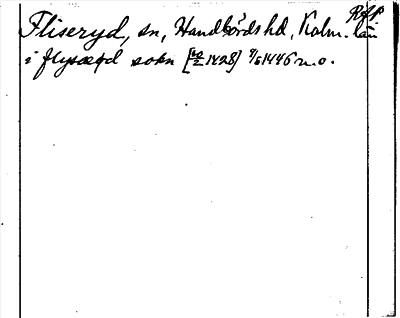 RAP
Fliseryd, sn, Handbörds hd, Kalm. län
i flysæryd sokn [1428] 1446 m.o.